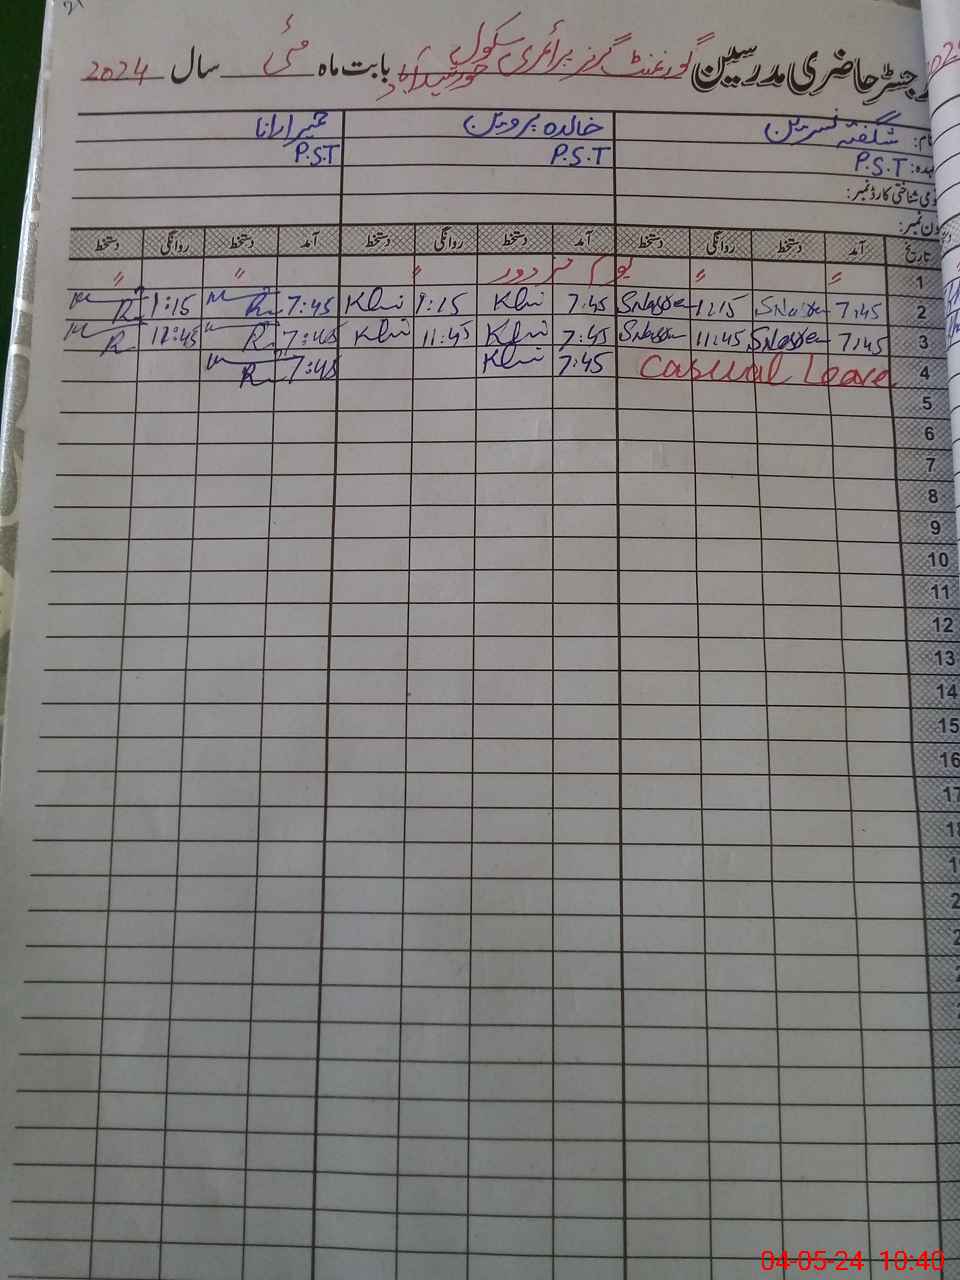 رجسٹر حاضری مدرسین گورنمنٹ گرلز پرائمری سکول خورشیدآباد بابت ماہ مئی سال 2024
نام: شگفتہ نسرین خالدہ پروین حمیرا رانا
عہدہ: P.S.T P.S.T P.S.T
قومی شناختی کارڈ نمبر:
فون نمبر:
تاریخ آمد دستخط روانگی دستخط آمد دستخط روانگی دستخط آمد دستخط روانگی دستخط
1 〃 〃 یوم مزدور 〃 〃 〃
2 7:45 SNasreen 1:15 SNasreen 7:45 Khi 1:15 Khi 7:45 R 1:15 R
3 7:45 SNasreen 11:45 SNasreen 7:45 Khi 11:45 Khi 7:45 R 11:45 R
4 Casual Leave 7:45 Khi 7:45 R
5
6
7
8
9
10
11
12
13
14
15
16
17
18
04-05-24 10:40